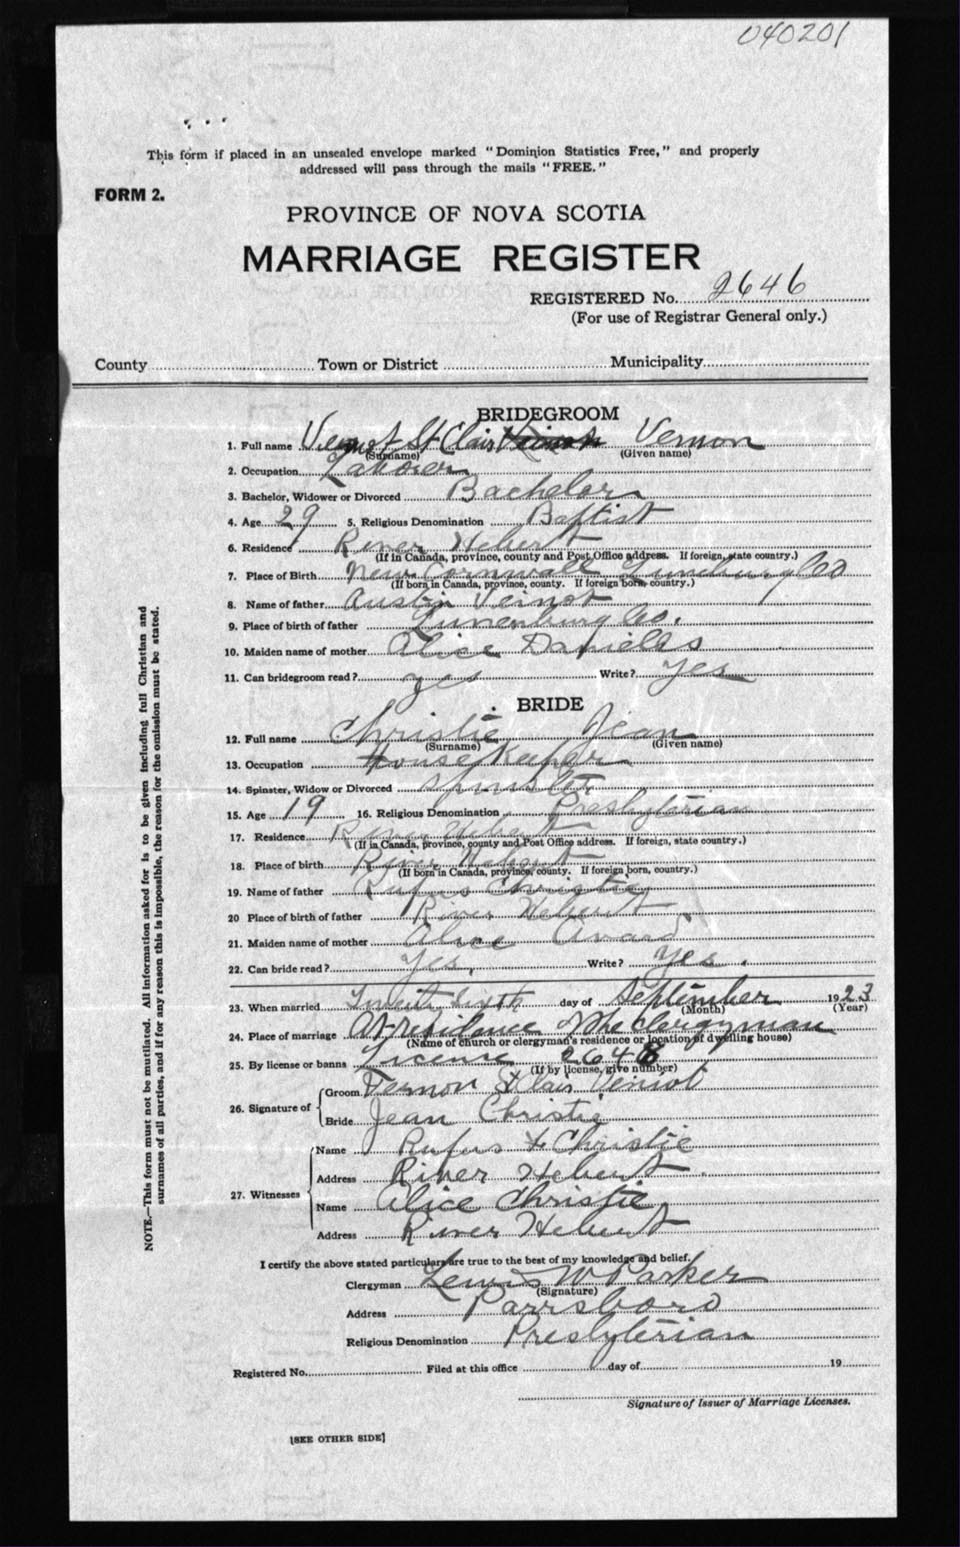 040201
This form if placed in an unsealed envelope marked "Dominion Statistics Free," and properly
addressed will pass through the mails "FREE."
FORM 2.
PROVINCE OF NOVA SCOTIA
MARRIAGE REGISTER
REGISTERED No. 2646
(For use of Registrar General only.)
County Town or District Municipality
BRIDEGROOM
1. Full name Veinot St Clair Vernon
(Surname) (Given name)
2. Occupation Laborer
3. Bachelor, Widower or Divorced Bachelor
4. Age 29 5. Religious Denomination Baptist
6. Residence River Hebert
(If in Canada, province, county and Post Office address. If foreign, state country.)
7. Place of Birth New Cornwall Lunenburg Co
(If born in Canada, province, county. If foreign born, country.)
8. Name of father Austin Veinot
9. Place of birth of father Lunenburg Co.
10. Maiden name of mother Alice Daniels
11. Can bridegroom read? yes Write? Yes
BRIDE
12. Full name Christie Jean
(Surname) (Given name)
13. Occupation House Keeper
14. Spinster, Widow or Divorced Spinster
15. Age 19 16. Religious Denomination Presbyterian
17. Residence River Hebert
(If in Canada, province, county and Post Office address. If foreign, state country.)
18. Place of birth River Hebert
(If born in Canada, province, county. If foreign born, country.)
19. Name of father Rufus Christie
20 Place of birth of father River Hebert
21. Maiden name of mother Alice Avard
22. Can bride read? Yes. Write? Yes.
23. When married Twenty Sixth day of September 1923
(Month) (Year)
24. Place of marriage At residence of the Clergyman
(Name of church or clergyman's residence or location of dwelling house)
25. By license or banns License 2648
(If by license, give number)
26. Signature of Groom Vernon St Clair Veinot
Bride Jean Christie
27. Witnesses Name Rufus Christie
Address River Hebert
Name Alice Christie
Address River Hebert
I certify the above stated particulars are true to the best of my knowledge and belief.
Clergyman Lewis W Parker
(Signature)
Address Parrsboro
Religious Denomination Presbyterian
Registered No. Filed at this office day of 19
Signature of Issuer of Marriage Licenses.
[SEE OTHER SIDE]
NOTE.—This form must not be mutilated. All information asked for is to be given including full Christian and
surnames of all parties, and if for any reason this is impossible, the reason for the omission must be stated.